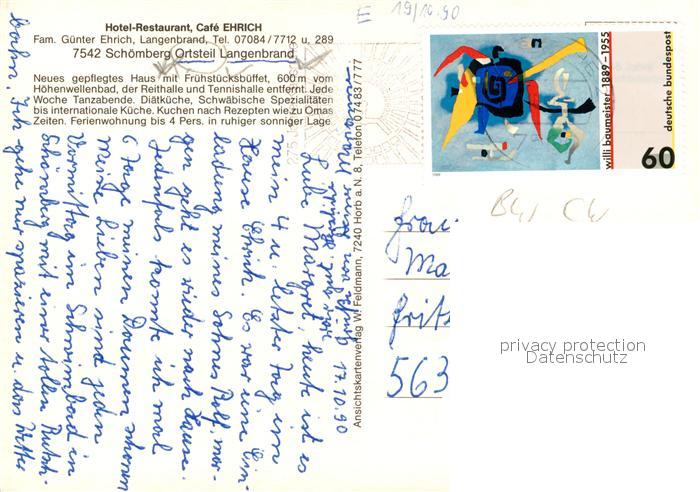 E 19/10.90
Hotel-Restaurant, Café EHRICH
Fam. Günter Ehrich, Langenbrand, Tel. 07084/7712 u, 289
7542 Schömberg Ortsteil Langenbrand
Neues gepflegtes Haus mit Frühstücksbüffet, 600 m vom
Höhenwellenbad, der Reithalle und Tennishalle entfernt. Jede
Woche Tanzabende. Diätküche, Schwäbische Spezialitäten
bis internationale Küche. Kuchen nach Rezepten wie zu Omas
Zeiten. Ferienwohnung bis 4 Pers. in ruhiger sonniger Lage
17.10.90
Liebe Margret, heute ist es
mein 4 u. letzter Tag im
Hause Ehrich. Es war eine Ein-
ladung meines Sohnes Rolf, mor-
gen geht es wieder nach Hause.
Jedenfalls konnte ich mal
6 Tage meinen Daumen schonen
Meine Lieben sind jeden
Vormittag im Schwimbad in
Schömberg mit einer tollen Rutsch-
bahn. Ich gehe nur spazieren u. das Wetter
Ansichtskartenverlag W. Feldmann, 7240 Horb a. N. 8, Telefon 07483/777
willi baumeister 1889-1955
deutsche bundespost
60
Frau
Ma
Frits
563
privacy protection
Datenschutz